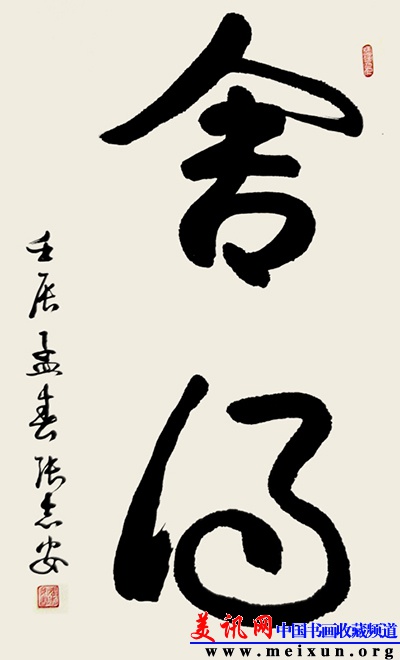 舍得
壬辰孟春张志安
美讯网中国书画收藏频道
www.meixun.org